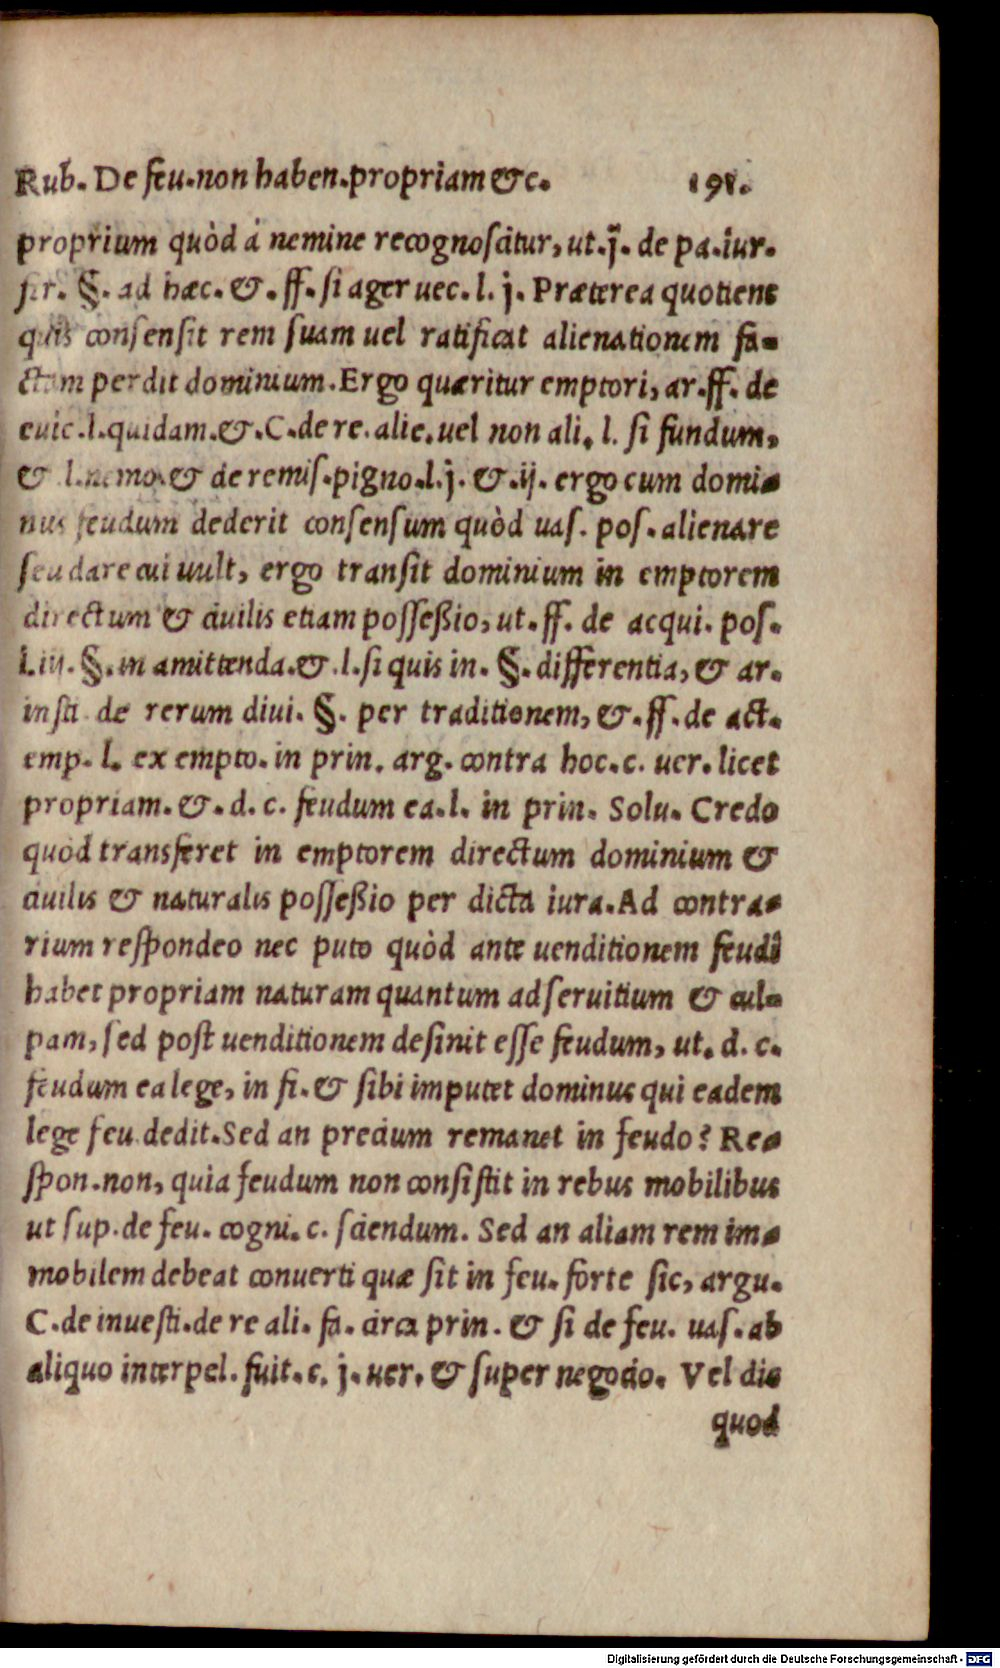 Rub. De feu. non haben. propriam &c. 191.
proprium quòd à nemine recognoscitur, ut. j. de pa. iur.
fir. §. ad hæc. &. ff. si ager uec. l. j. Præterea quotiens
quis consensit rem suam uel ratificat alienationem fa-
ctam perdit dominium. Ergo quæritur emptori, ar. ff. de
euic. l. quidam. &. C. de re. alie. uel non ali, l. si fundum,
& l. nemo. & de remis. pigno. l. j. &. ij. ergo cum domi-
nus feudum dederit consensum quòd uas. pos. alienare
seu dare cui uult, ergo transit dominium in emptorem
directum & ciuilis etiam possessio, ut. ff. de acqui. pos.
l. iij. §. in amittenda. & l. si quis in. §. differentia, & ar.
insti de rerum diui. §. per traditionem, &. ff. de act.
emp. l. ex empto. in prin. arg. contra hoc. c. uer. licet
propriam. &. d. c. feudum ea. l. in prin. Solu. Credo
quòd transferet in emptorem directum dominium &
ciuilis & naturalis possessio per dicta iura. Ad contra-
rium respondeo nec puto quòd ante uenditionem feudi
habet propriam naturam quantum ad seruitium & cul-
pam, sed post uenditionem desinit esse feudum, ut. d. c.
feudum ea lege, in fi. & sibi imputet dominus qui eadem
lege feu. dedit. Sed an precium remanet in feudo? Re-
spon. non, quia feudum non consistit in rebus mobilibus
ut sup. de feu. cogni. c. sciendum. Sed an aliam rem im-
mobilem debeat conuerti quæ sit in feu. forte sic, argu.
C. de inuesti. de re ali. fa. circa prin. & si de feu. uas. ab
aliquo interpel. fuit. c. j. uer. & super negocio. Vel dic
quod
Digitalisierung gefördert durch die Deutsche Forschungsgemeinschaft - DFG